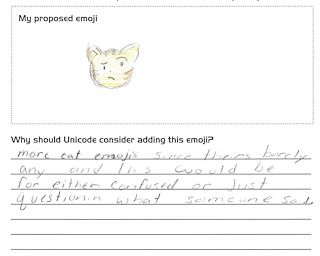 My proposed emoji
Why should Unicode consider adding this emoji?
more cat emojis since theirs barely
any and this would be
for either confused or Just
questionin what someone said